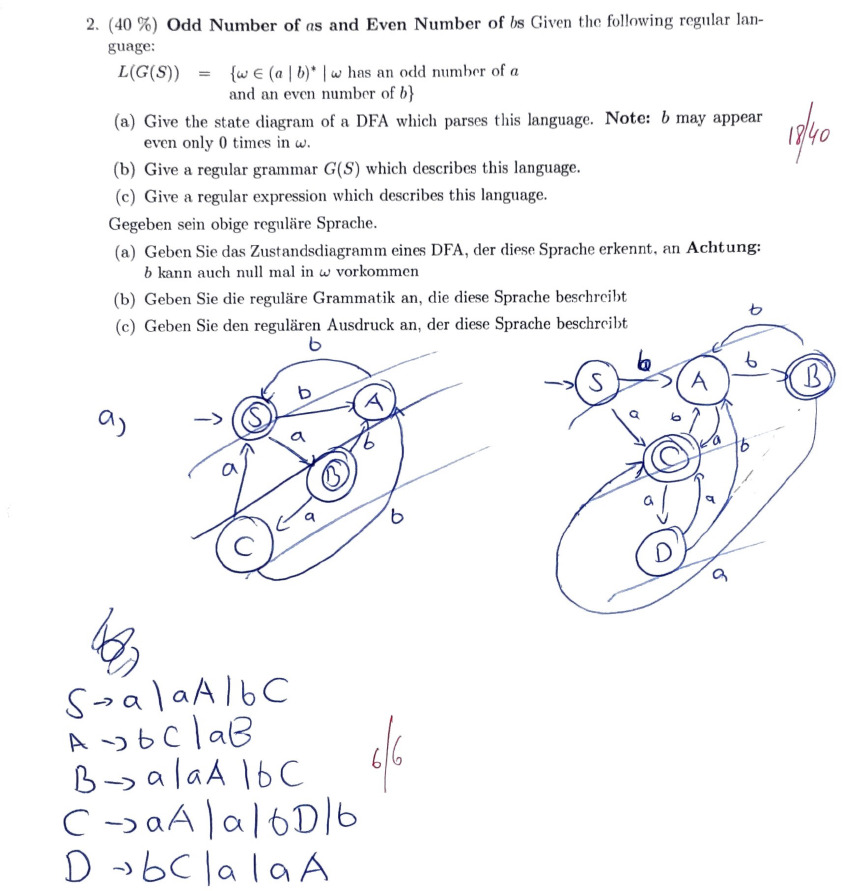 2. (40 %) Odd Number of as and Even Number of bs Given the following regular lan-
guage:
L(G(S)) = {ω ∈ (a | b)* | ω has an odd number of a
and an even number of b}
(a) Give the state diagram of a DFA which parses this language. Note: b may appear
even only 0 times in ω.
18/40
(b) Give a regular grammar G(S) which describes this language.
(c) Give a regular expression which describes this language.
Gegeben sein obige reguläre Sprache.
(a) Geben Sie das Zustandsdiagramm eines DFA, der diese Sprache erkennt, an Achtung:
b kann auch null mal in ω vorkommen
(b) Geben Sie die reguläre Grammatik an, die diese Sprache beschreibt
(c) Geben Sie den regulären Ausdruck an, der diese Sprache beschreibt
a)
b
S b A
a b
a B
C a b
b
S b A b B
a b a b
C
a a
D a
S → a | aA | bC
A → bC | aB
B → a | aA | bC
6/6
C → aA | a | bD | b
D → bC | a | aA